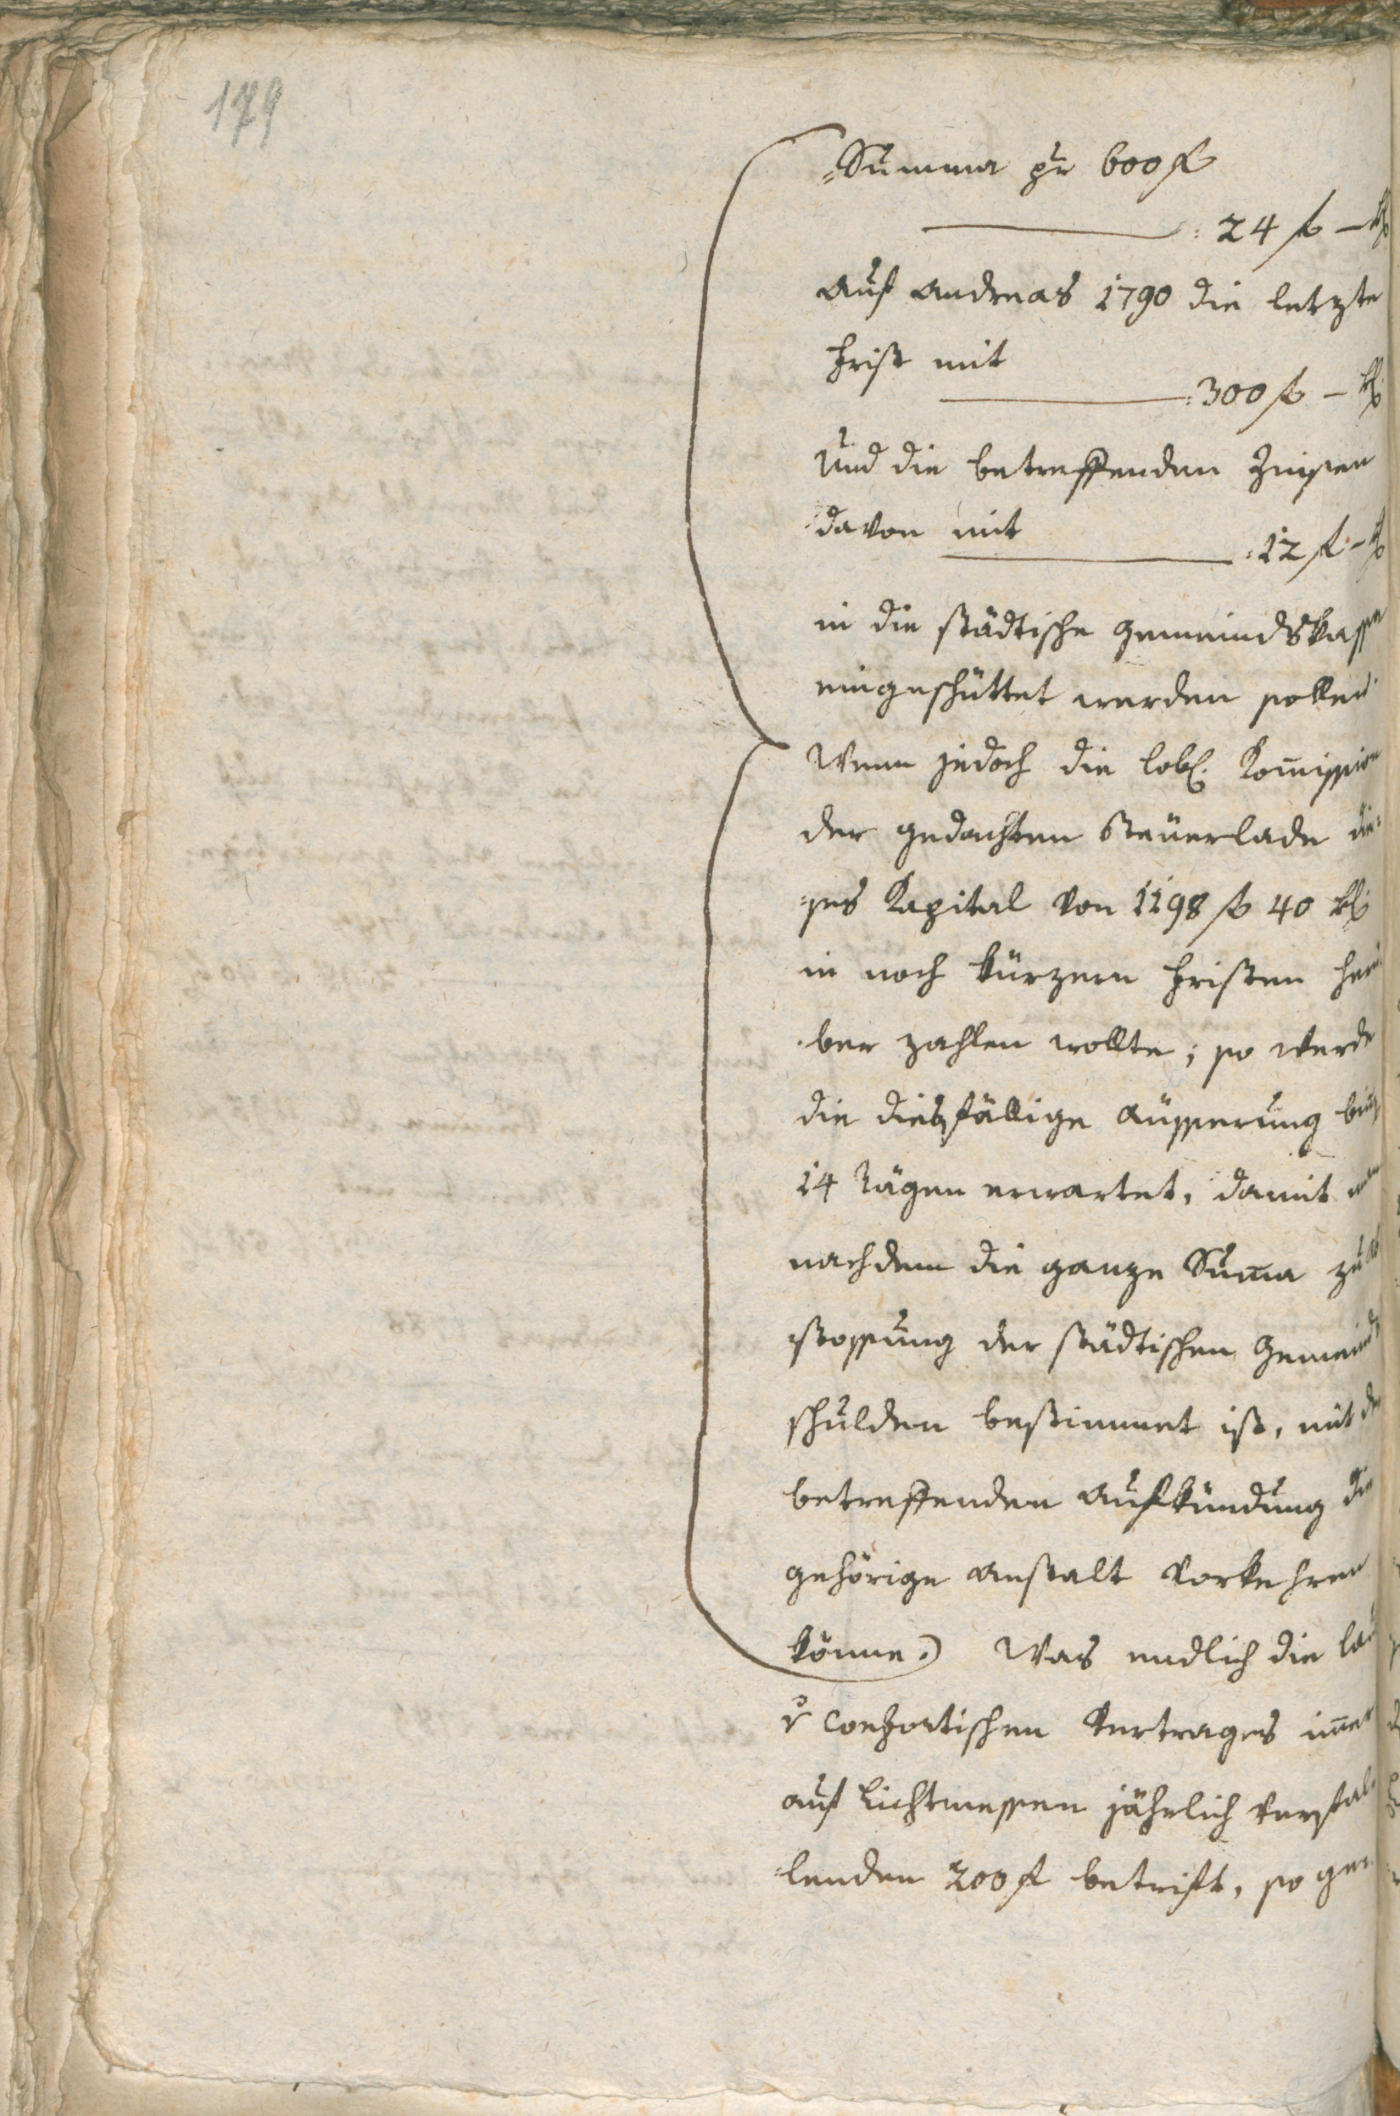 179
=Summa pr 600 f
24 f – x
auf Andreas 1790 die letzte
Frist mit
300 f – x
Und die betreffenden Zinsen
davon mit
12 f – x
in die städtische Gemeindskassen
eingeschüttet werden sollen.
Wenn jedoch die lobl. Kom̅ission
der gedachten Steuerlade die=
=ses Kapital von 1198 f 40 x
in noch kürzern Fristen
ber zahlen wollte; so werde
die diesfällige Äusserung
14 Tägen erwartet, damit
nachdem die ganze Sum̅a zu
stossung der städtischen Gemeinds
schulden bestimmet ist, mit der
betreffenden Aufkündung die
gehörige Anstalt vorkehren
könne.) Was endlich die
conhortischen Vertrages im̅er
auf Lichtmessen jährlich verfal
=lenden 200 f betrift, so